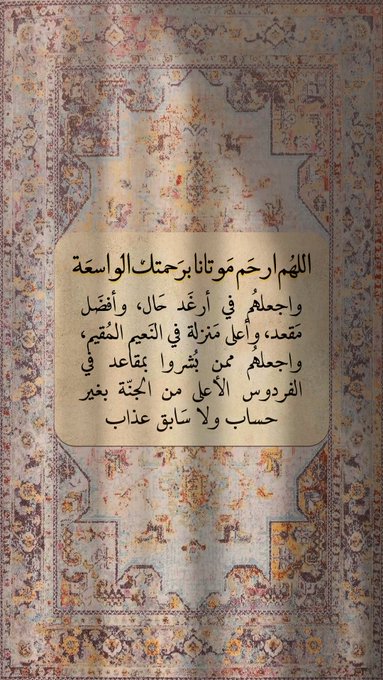 اللهُم ارحَم مَوتانا برَحمتك الواسعَة
واجعلهُم في أرغَد حَال، وأفضَل
مَقعد، وأعلى مَنزلة في النَعيم المُقيم،
واجعلهُم ممن بُشروا بمقاعد في
الفردوس الأعلى من الجنّة بغير
حساب ولا سَابق عذاب